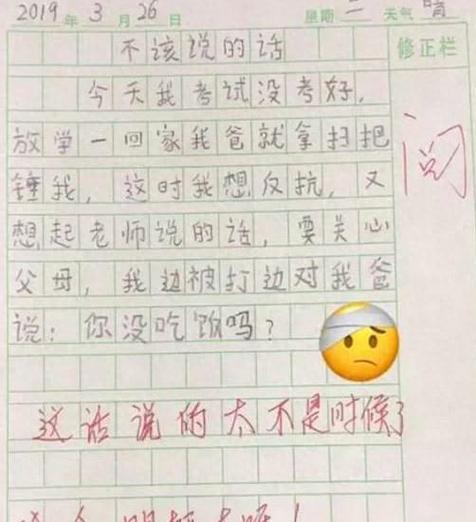 2019年3月26日 星期二 天气晴
不该说的话
修正栏
今天我考试没考好,
放学一回家我爸就拿扫把
锤我,这时我想反抗,又
想起老师说的话,要关心
父母,我边被打边对我爸
说:你没吃饭吗?
阅
这话说的太不是时候了